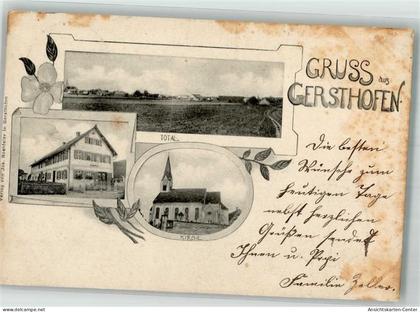 GRUSS aus
GERSTHOFEN.
TOTAL.
KIRCHE.
Die besten
Wünsche zum
heutigen Tage
nebst herzlichen
Grüßen sendet
Ihnen u.
Familie Zeller.
Verlag von Jos. in Gersthofen
Ansichtskarten-Center